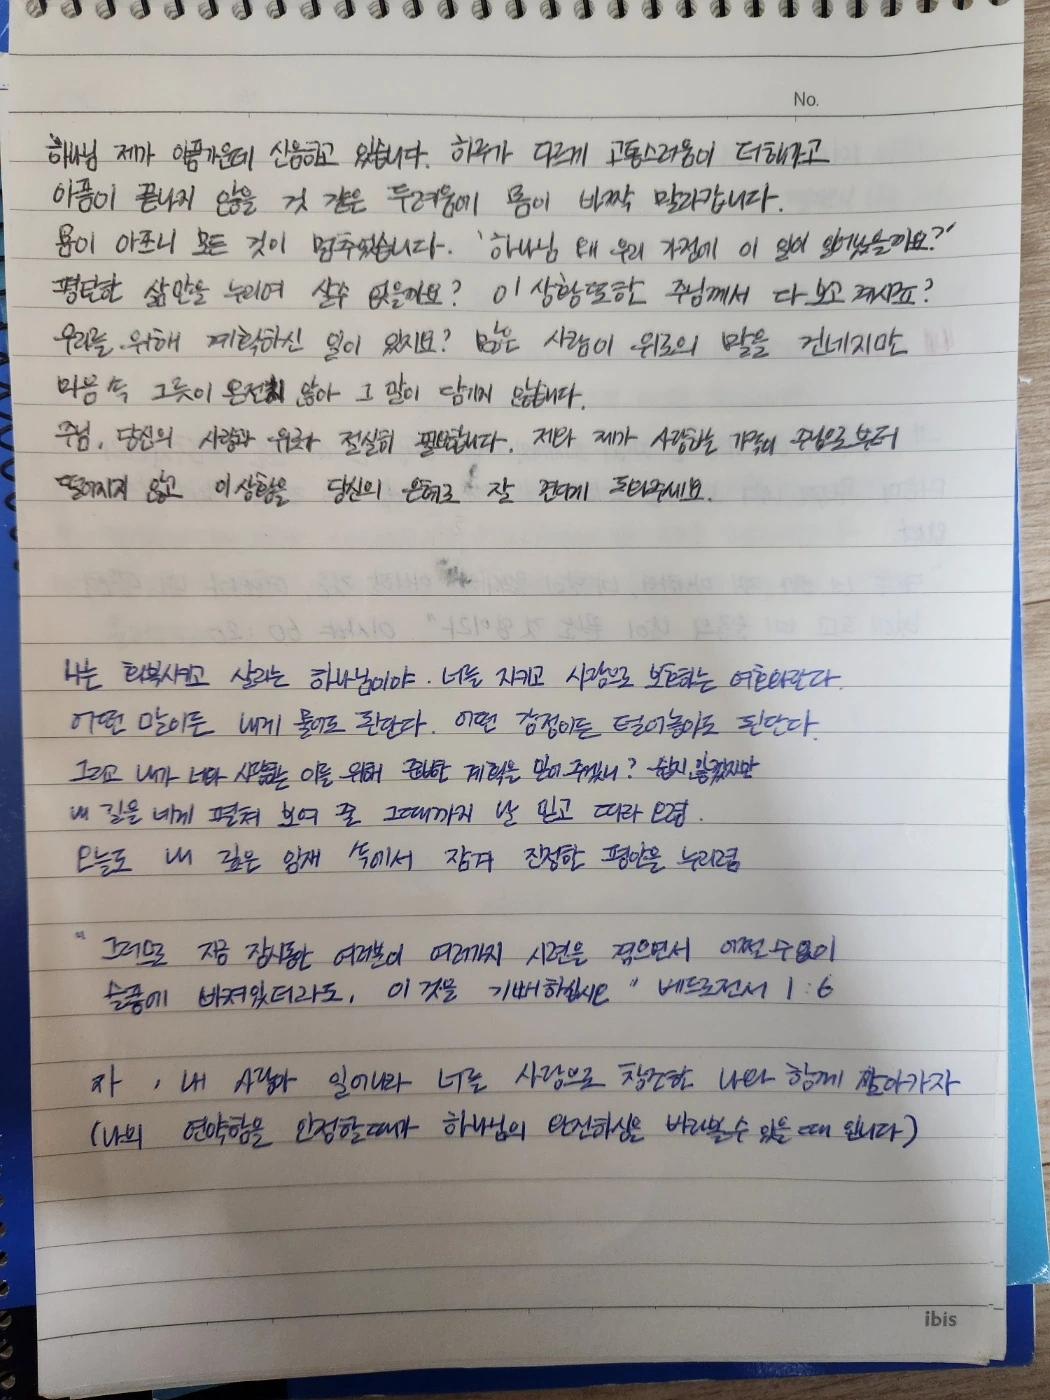 No.
하나님 제가 아픔가운데 신음하고 있습니다. 하루가 다르게 고통스러움이 더해가고
아픔이 끝나지 않을 것 같은 두려움에 몸이 바짝 말라갑니다.
몸이 아프니 모든 것이 멈추었습니다. '하나님 왜 우리 가정에 이 일이 일어났을까요?'
평탄한 삶만을 누리며 살수 없을까요? 이 상황또한 주님께서 다 보고 계시죠?
우리를 위해 계획하신 일이 있지요? 많은 사람이 위로의 말을 건네지만
마음 속 그릇이 온전치 않아 그 말이 담기지 않습니다.
주님, 당신의 사랑과 위로가 절실히 필요합니다. 저와 제가 사랑하는 가족이 주님으로부터
떨어지지 않고 이상황을 당신의 은혜로 잘 견디게 도와주세요.
나는 회복시키고 살리는 하나님이야. 너를 지키고 사랑으로 보호하는 여호와란다.
어떤 말이든 내게 물어도 된단다. 어떤 감정이든 털어놓아도 된단다.
그리고 내가 너와 사랑하는 이를 위해 준비한 계획을 믿어 주겠니? 쉽지 않겠지만
내 길을 네게 펼쳐 보여 줄 그때까지 날 믿고 따라 오렴.
오늘도 내 깊은 임재 속에서 잠겨 진정한 평안을 누리렴
" 그러므로 지금 잠시동안 여러분이 여러가지 시련을 겪으면서 어쩔수없이
슬픔에 빠져있더라도, 이것을 기뻐하십시오 " 베드로전서 1:6
자, 내 사랑아 일어나라 너를 사랑으로 창조한 나와 함께 살아가자
(나의 연약함을 인정할때마다 하나님의 완전하심을 바라볼수 있을 때 입니다)
ibis